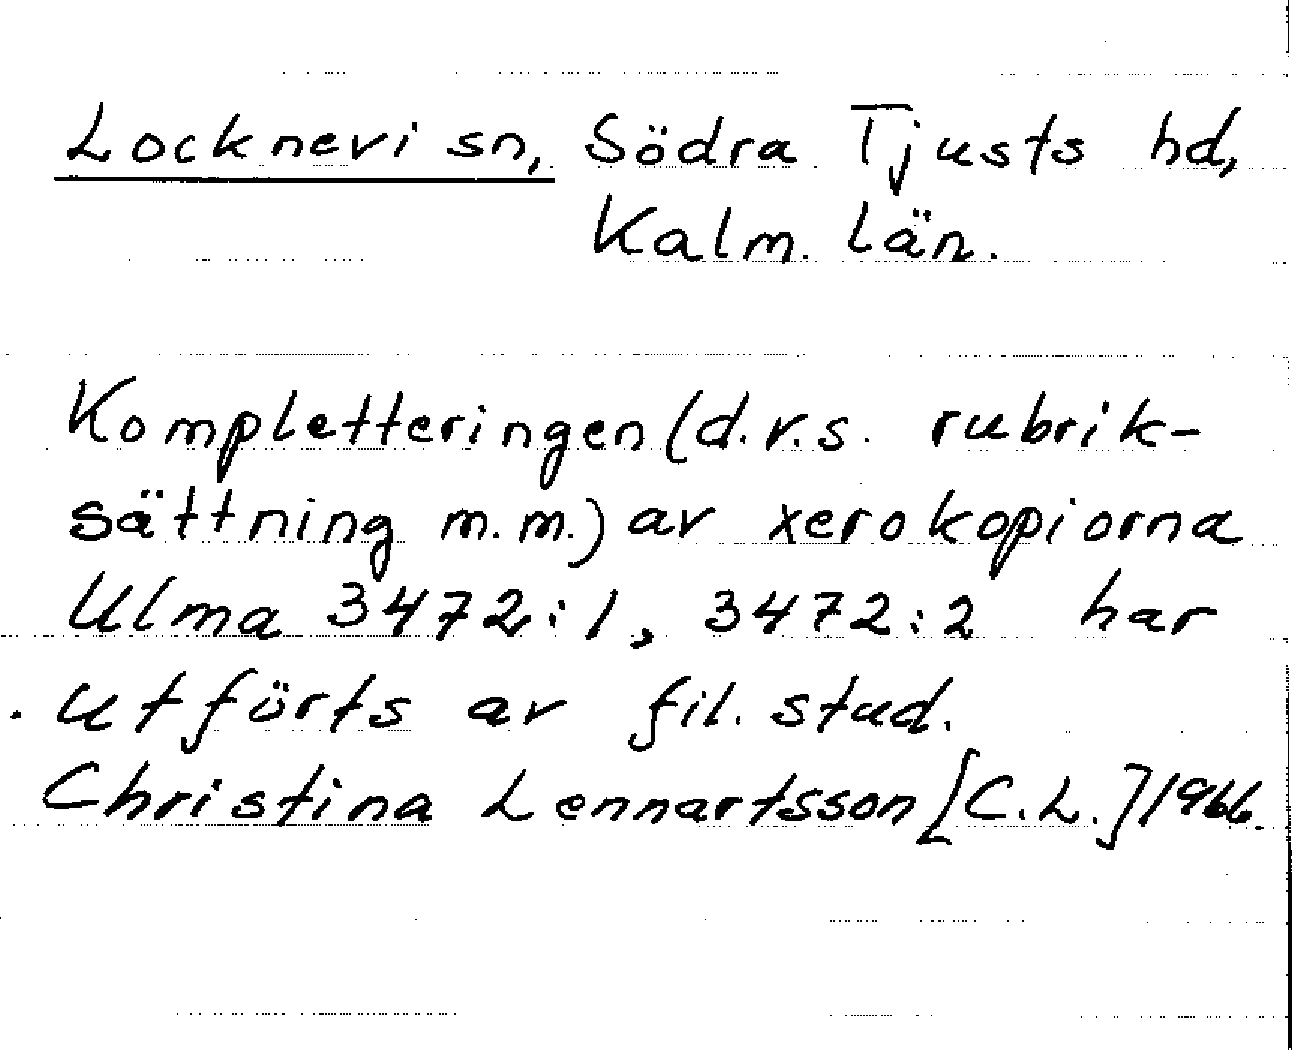 Locknevi sn, Södra Tjusts hd,
Kalm. län.
Kompletteringen (d.v.s. rubrik-
sättning m.m.) av xerokopiorna
Ulma 3472:1, 3472:2 har
utförts av fil. stud.
Christina Lennartsson [C.L.] 1966.